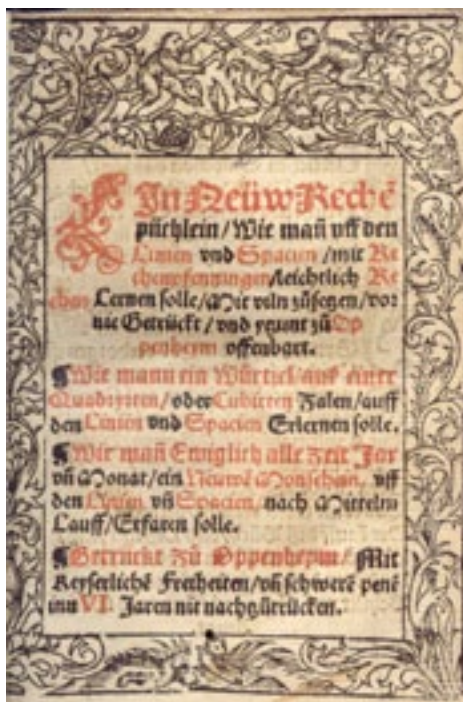 EIn Neüw Rechẽ
püchlein/Wie mañ vff den
Linien vnd Spacien/mit Re
chenpfenningen/leichtlich Re
chen Lernen solle/Mit viln zůsetzen/vor
nie Getrückt/vnd yetzunt zů Op
penheym offenbart.
¶Wie mann ein Würtzel/auß einer
Quadraten/oder Cubicten Zalen/auff
den Linien vnd Spacien Erlernen solle.
¶Wie mañ Ewiglich alle Zeit Jar
vñ Monat/ein Neuwẽ Monschein, vff
den Linien vñ Spacien, nach Mitteln
Lauff/Erfaren solle.
¶Getruckt zů Oppenheym/Mit
Keyserlichẽ Freiheiten/vñ schwerẽ penẽ
inn VI. Jaren nit nachzůtrücken.